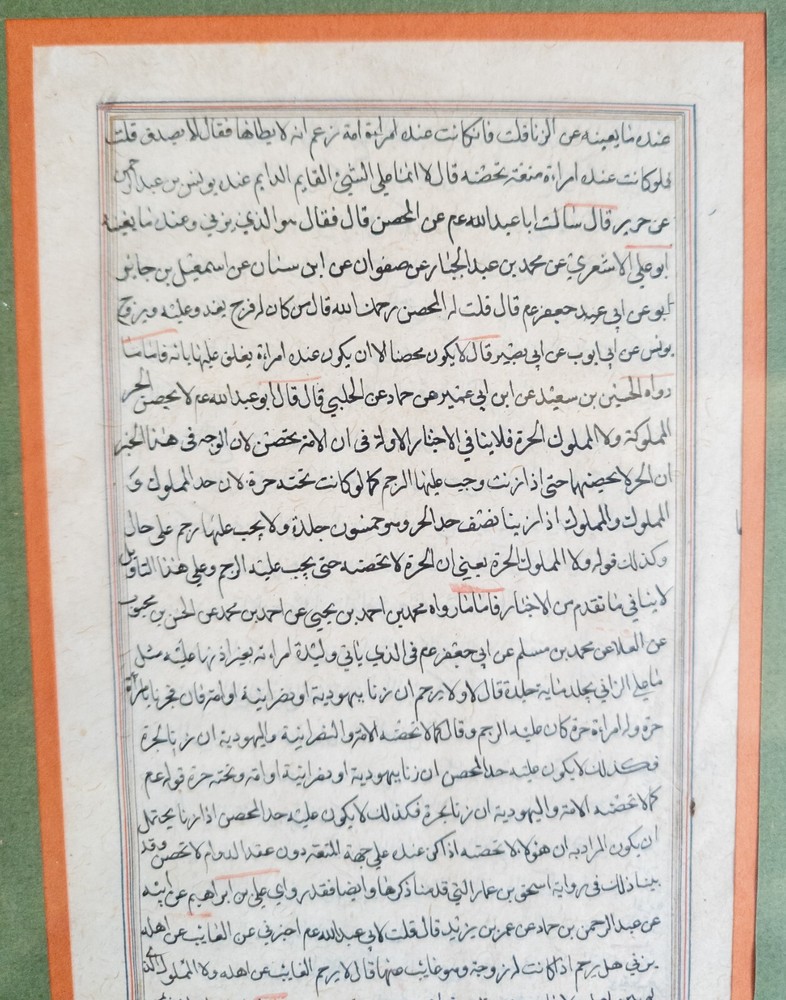 عنده ما يغنيه عن الزنا قلت فان كانت عنده امراءة امة زعم انه لا يطاها فقال لا يصدق قلت
فلو كانت عنده امراءة متعة تحصنه قال لا انما علي الشئ القايم الدايم عنده يونس بن عبد الرحمن
عن حرير قال سالت ابا عبدالله عم عن المحصن قال فقال هو الذي يزني وعنده ما يغنيه
ابو علي الاشعري عن محمد بن عبد الجبار عن صفوان عن ابن سنان عن اسمعيل بن جابر
عن ابي جعفر عم قال قلت له المحصن رحمك الله قال من كان له فرج يغدو عليه ويروح
يونس عن ابي ايوب عن ابي بصير قال لا يكون محصنا الا ان يكون عنده امراءة يغلق عليها بابه فاما ما
رواه الحسين بن سعيد عن ابن ابي عمير عن حماد عن الحلبي قال قال ابو عبدالله عم لا يحصن الحر
المملوكة ولا المملوك الحرة فلا ينافي الاخبار الاولة في ان الامة تحصن لان الوجه في هذا الخبر
ان الحر لا يحصنها حتى اذا زنت وجب عليها الرجم كما لو كانت تحته حرة لان حد المملوك و
المملوك والمملوك اذا زينا نصف حد الحر وهو خمسون جلدة ولا يجب عليها رجم على حال
وكذلك قوله ولا المملوك الحرة يعني ان الحرة لا تحصنه حتى يجب عليه الرجم وعلي هذا التاويل
لا ينافي ما تقدم من الاخبار فاما ما رواه محمد بن احمد بن يحيى عن احمد بن محمد عن الحسن بن محبوب
عن العلا عن محمد بن مسلم عن ابي جعفر عم في الذي ياتي وليدة امراءته بغير اذنها عليه مثل
ما علي الزاني يجلد ماية جلدة قال ولا يرجم ان زنا بيهودية او نصرانية او امة فان فجر بامراة
حرة وله امراءة حرة كان عليه الرجم وقال كما لا تحصنه الامة والنصرانية واليهودية ان زنا بالحرة
فكذلك لا يكون عليه حد المحصن ان زنا بيهودية او نصرانية او امة وتحته حرة قوله عم
كما لا تحصنه الامة واليهودية ان زنا بحرة فكذلك لا يكون عليه حد المحصن اذا زنا يحتمل
ان يكون المراد به ان هولاء لا تحصنه اذا كن عنده على جهة المتعة دون عقد الدوام لا تحصن وقد
بينا ذلك في رواية اسحق بن عمار التي قدمنا ذكرها وايضا فقد روي علي بن ابراهيم عن ابيه
عن عبد الرحمن بن حماد عن عمر بن يزيد قال قلت لابي عبدالله عم اخبرني عن الغايب عن اهله
يزني هل يرجم اذا كانت له زوجة وهو غايب عنها قال لا يرجم الغايب عن اهله ولا المملوك الذي